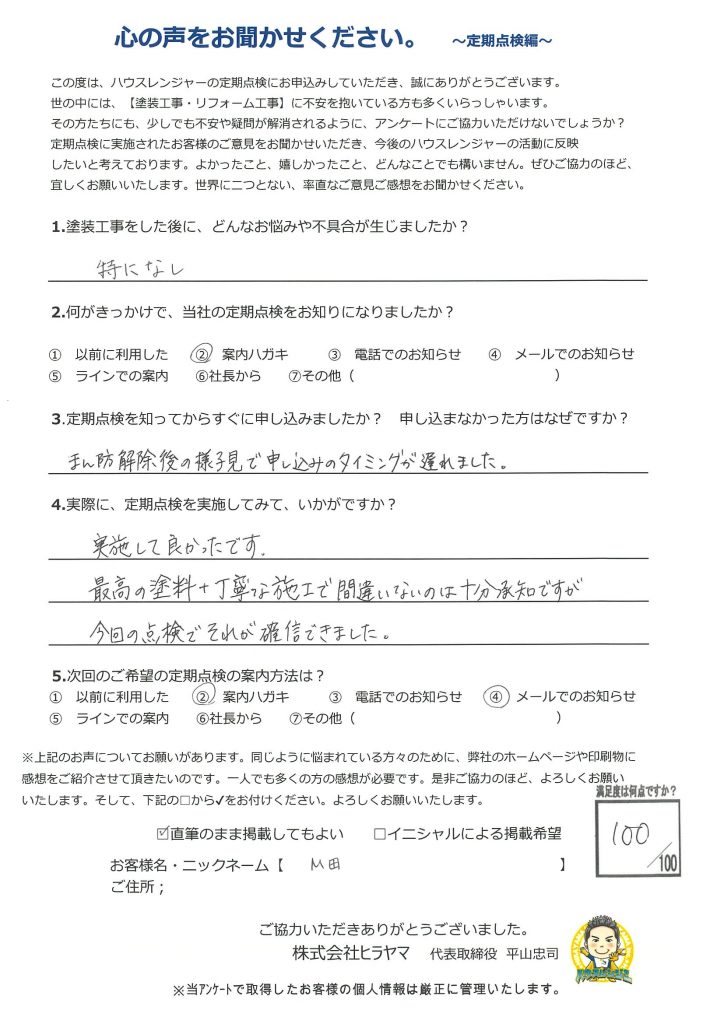 心の声をお聞かせください。 ～定期点検編～
この度は、ハウスレンジャーの定期点検にお申込みしていただき、誠にありがとうございます。
世の中には、【塗装工事・リフォーム工事】に不安を抱いている方も多くいらっしゃいます。
その方たちにも、少しでも不安や疑問が解消されるように、アンケートにご協力いただけないでしょうか？
定期点検に実施されたお客様のご意見をお聞かせいただき、今後のハウスレンジャーの活動に反映
したいと考えております。よかったこと、嬉しかったこと、どんなことでも構いません。ぜひご協力のほど、
宜しくお願いいたします。世界に二つとない、率直なご意見ご感想をお聞かせください。
1.塗装工事をした後に、どんなお悩みや不具合が生じましたか？
特になし
2.何がきっかけで、当社の定期点検をお知りになりましたか？
① 以前に利用した ② 案内ハガキ ③ 電話でのお知らせ ④ メールでのお知らせ
⑤ ラインでの案内 ⑥社長から ⑦その他（ ）
3.定期点検を知ってからすぐに申し込みましたか？ 申し込まなかった方はなぜですか？
まん防解除後の様子見で申し込みのタイミングが遅れました。
4.実際に、定期点検を実施してみて、いかがですか？
実施して良かったです.
最高の塗料+丁寧な施工で間違いないのは十分承知ですが
今回の点検でそれが確信できました。
5.次回のご希望の定期点検の案内方法は？
① 以前に利用した ② 案内ハガキ ③ 電話でのお知らせ ④ メールでのお知らせ
⑤ ラインでの案内 ⑥社長から ⑦その他（ ）
※上記のお声についてお願いがあります。同じように悩まれている方々のために、弊社のホームページや印刷物に
感想をご紹介させて頂きたいのです。一人でも多くの方の感想が必要です。是非ご協力のほど、よろしくお願い
いたします。そして、下記の□から✓をお付けください。よろしくお願いいたします。
満足度は何点ですか？
100/100
☑直筆のまま掲載してもよい □イニシャルによる掲載希望
お客様名・ニックネーム【 M田 】
ご住所；
ご協力いただきありがとうございました。
株式会社ヒラヤマ 代表取締役 平山忠司
※当アンケートで取得したお客様の個人情報は厳正に管理いたします。